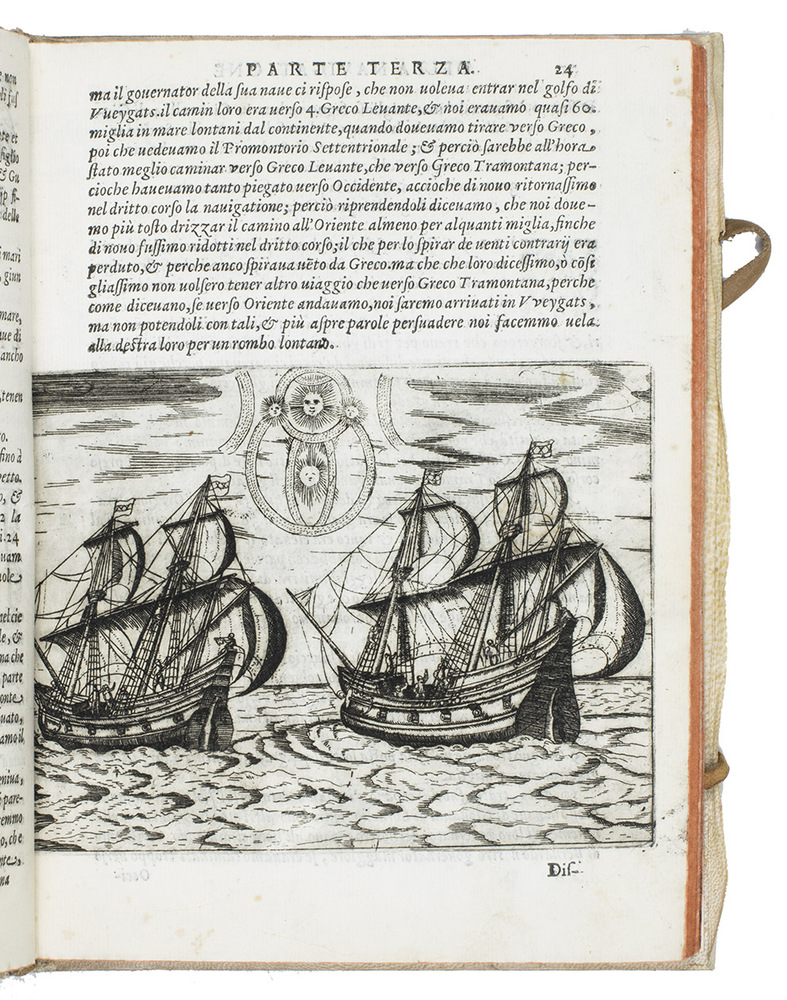 PARTE TERZA. 24
ma il gouernator della sua naue ci rispose, che non uoleua entrar nel golfo di
Vueygats. il camin loro era uerso 4. Greco Leuante, & noi erauamo quasi 60.
miglia in mare lontani dal continente, quando doueuamo tirare verso Greco,
poi che uedeuamo il Promontorio Settentrionale; & perciò sarebbe all'hora
stato meglio caminar verso Greco Leuante, che verso Greco Tramontana; per-
cioche haueuamo tanto piegato uerso Occidente, accioche di nouo ritornassimo
nel dritto corso la nauigatione; perciò riprendendoli diceuamo, che noi doue-
mo più tosto drizzar il camino all'Oriente almeno per alquanti miglia, finche
di nouo fussimo ridotti nel dritto corso; il che per lo spirar de uenti contrarij era
perduto, & perche anco spiraua uẽto da Greco. ma che che loro dicessimo, ò cõsi
gliassimo non uolsero tener altro uiaggio che uerso Greco Tramontana, perche
come diceuano, se uerso Oriente andauamo, noi saremo arriuati in Vveygats,
ma non potendoli con tali, & più aspre parole persuadere noi facemmo uela
alla destra loro per un rombo lontano.
Dis-